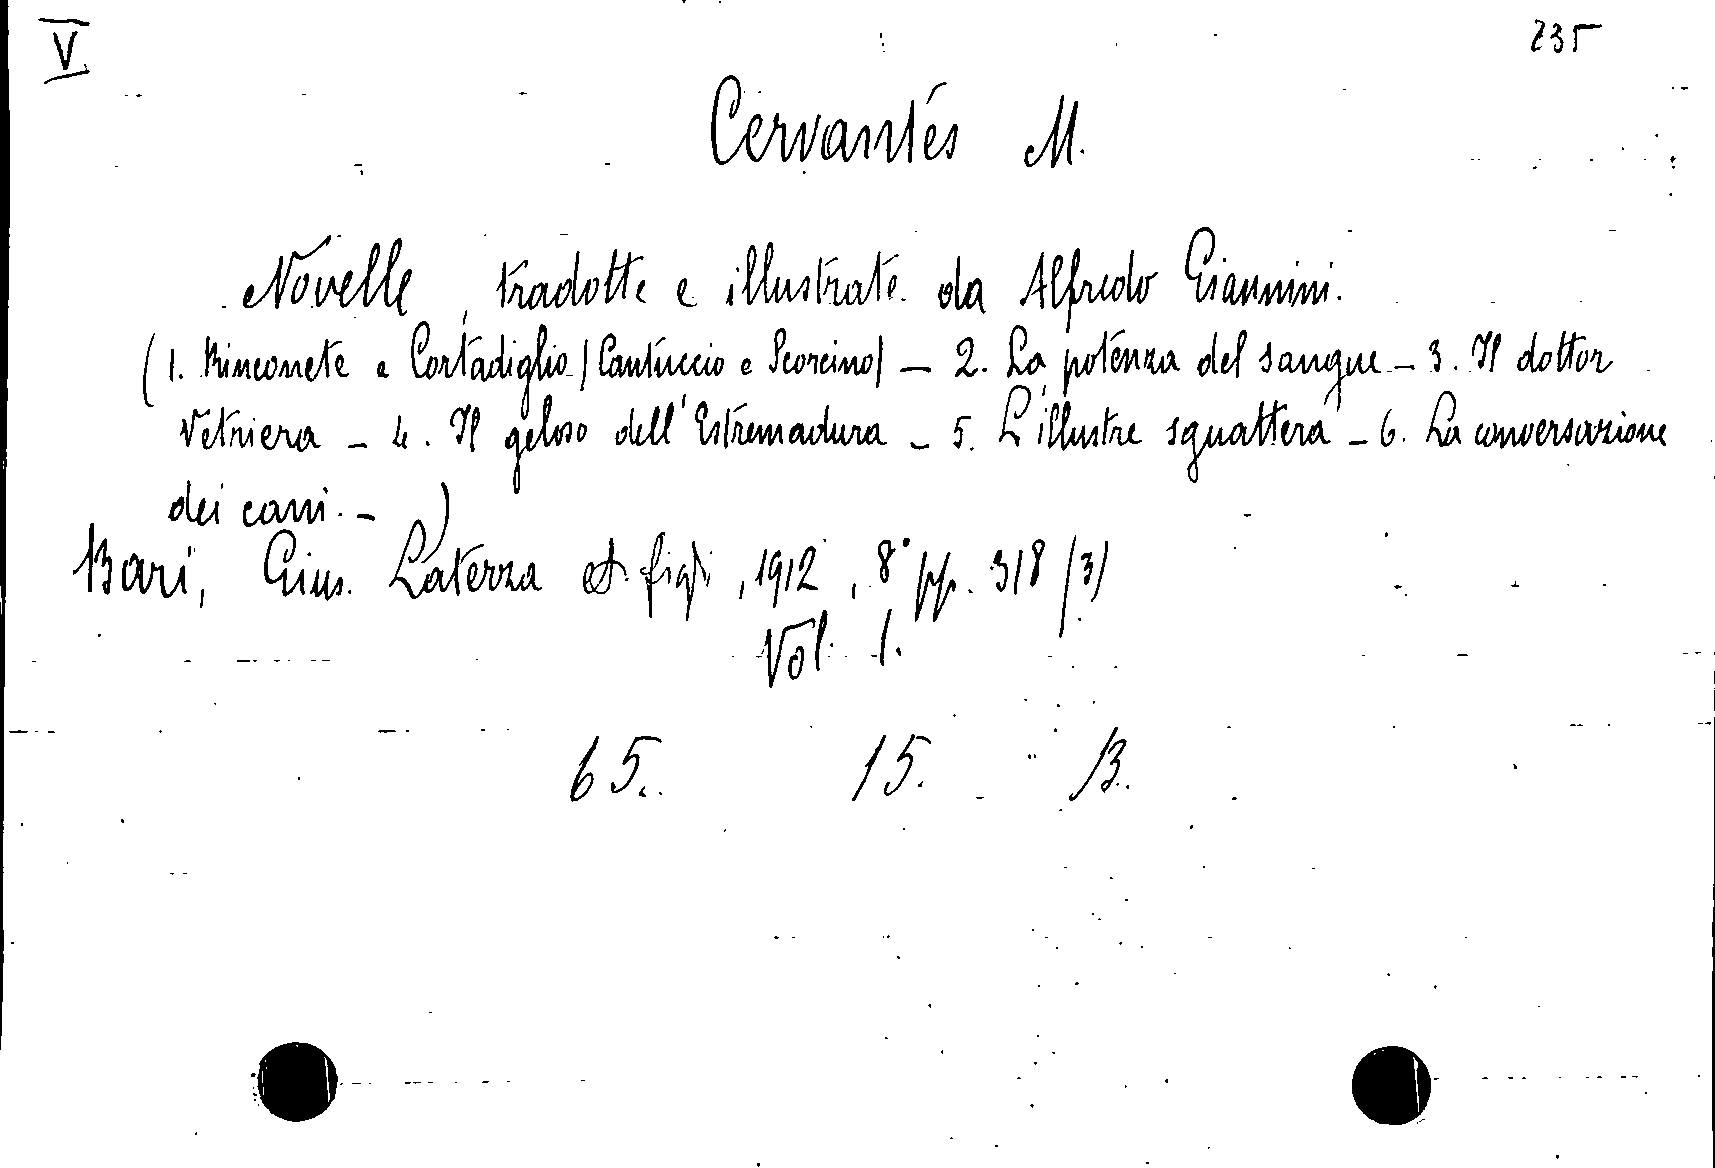 V 235
Cervantés M.
Novelle, tradotte e illustrate da Alfredo Giannini.
(1. Rinconete e Cortadiglio / Cantuccio e Scorcino / – 2. La potenza del sangue – 3. Il dottor
Vetriera – 4. Il geloso dell'Estremadura – 5. L'illustre sguattera – 6. La conversazione
dei cani. – )
Bari, Gius. Laterza et figli, 1912, 8° pp. 318 (3)
Vol. 1.
65. 15. B.